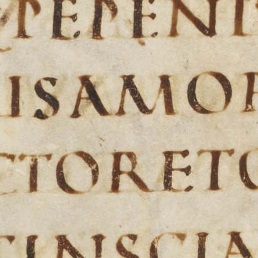 REPENT
ISAMOR
CTORETO
INSCIA